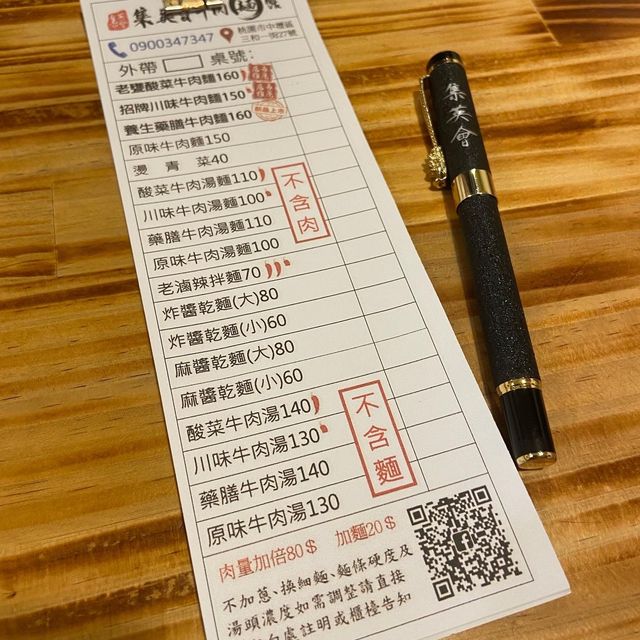 集英
0900347347
桃園市中壢區
三和一街27號
外帶 桌號:
老鹽酸菜牛肉麵160
招牌川味牛肉麵150
養生藥膳牛肉麵160
原味牛肉麵150
燙 青 菜40
酸菜牛肉湯麵110
川味牛肉湯麵100
藥膳牛肉湯麵110
原味牛肉湯麵100
不含肉
老滷辣拌麵70
炸醬乾麵(大)80
炸醬乾麵(小)60
麻醬乾麵(大)80
麻醬乾麵(小)60
酸菜牛肉湯140
川味牛肉湯130
藥膳牛肉湯140
原味牛肉湯130
不含麵
肉量加倍80$ 加麵20$
不加蔥、換細麵、麵條硬度及
湯頭濃度如需調整請直接
處註明或櫃檯告知
集英會